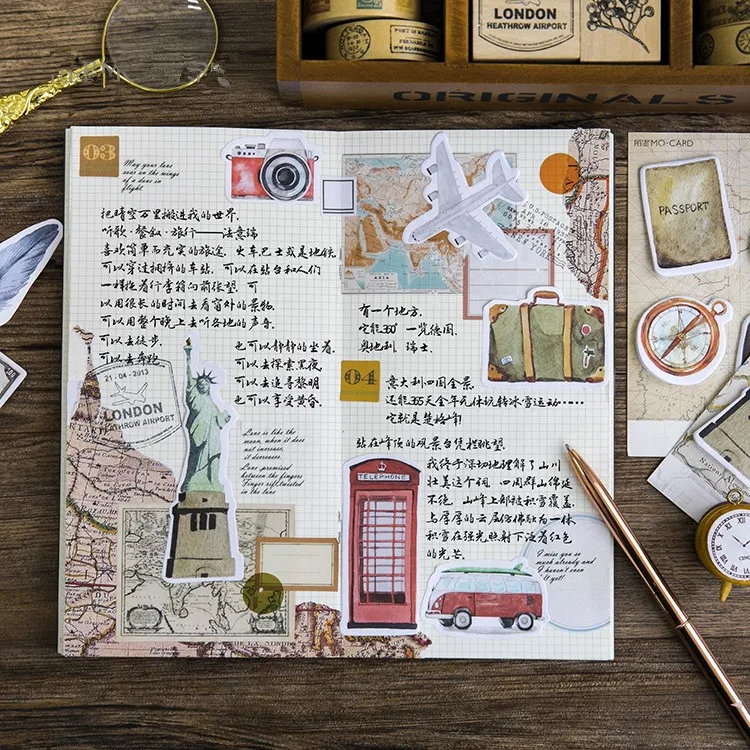 LONDON
HEATHROW AIRPORT
ORIGINALS
03
May your love
soar on the wings
of a dove in
flight
把晴空万里搬进我的世界.
听歌·餐叙·旅行——法意瑞
喜欢简单而充实的旅途, 火车巴士或是地铁,
可以穿过拥挤的车站, 可以在站台和人们
一样拖着行李箱向前张望, 可
以用很长的时间去看窗外的景物.
可以用整个晚上去听各地的声音.
可以去徒步,
可以去奔跑
也可以静静的坐着.
可以去探索黑夜
可以去追寻黎明
也可以享受黄昏.
21-04-2013
LONDON
HEATHROW AIRPORT
Love is like the
moon, when it does
not increase,
it decreases.
Love promised
between the fingers
Finger rift,twisted
in the love
有一个地方.
它能360° 一览德国.
奥地利, 瑞士.
04
意大利四国全景.
还能365天全年无休玩转冰雪运动……
它就是楚格峰!
站在峰顶的观景台凭栏眺望.
我终于深切地理解了山川
壮美这个词. 四周群山绵延
不绝. 山峰上部被积雪覆盖.
与厚厚的云层仿佛融为一体.
积雪在强光照射下泛着红色
的光芒.
TELEPHONE
I miss you so
much already and
I haven't even
MEMO·CARD
PASSPORT